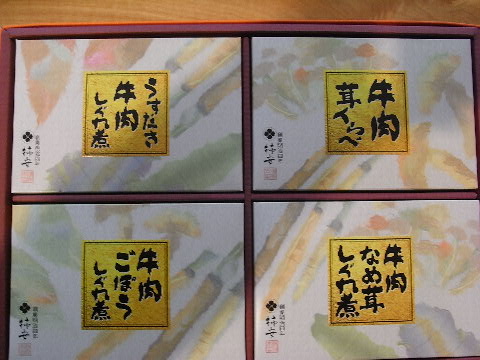 うすだき
牛肉
しぐれ煮
柿安
牛肉
茸くらべ
柿安
牛肉
ごぼう
しぐれ煮
柿安
牛肉
なめ茸
しぐれ煮
柿安